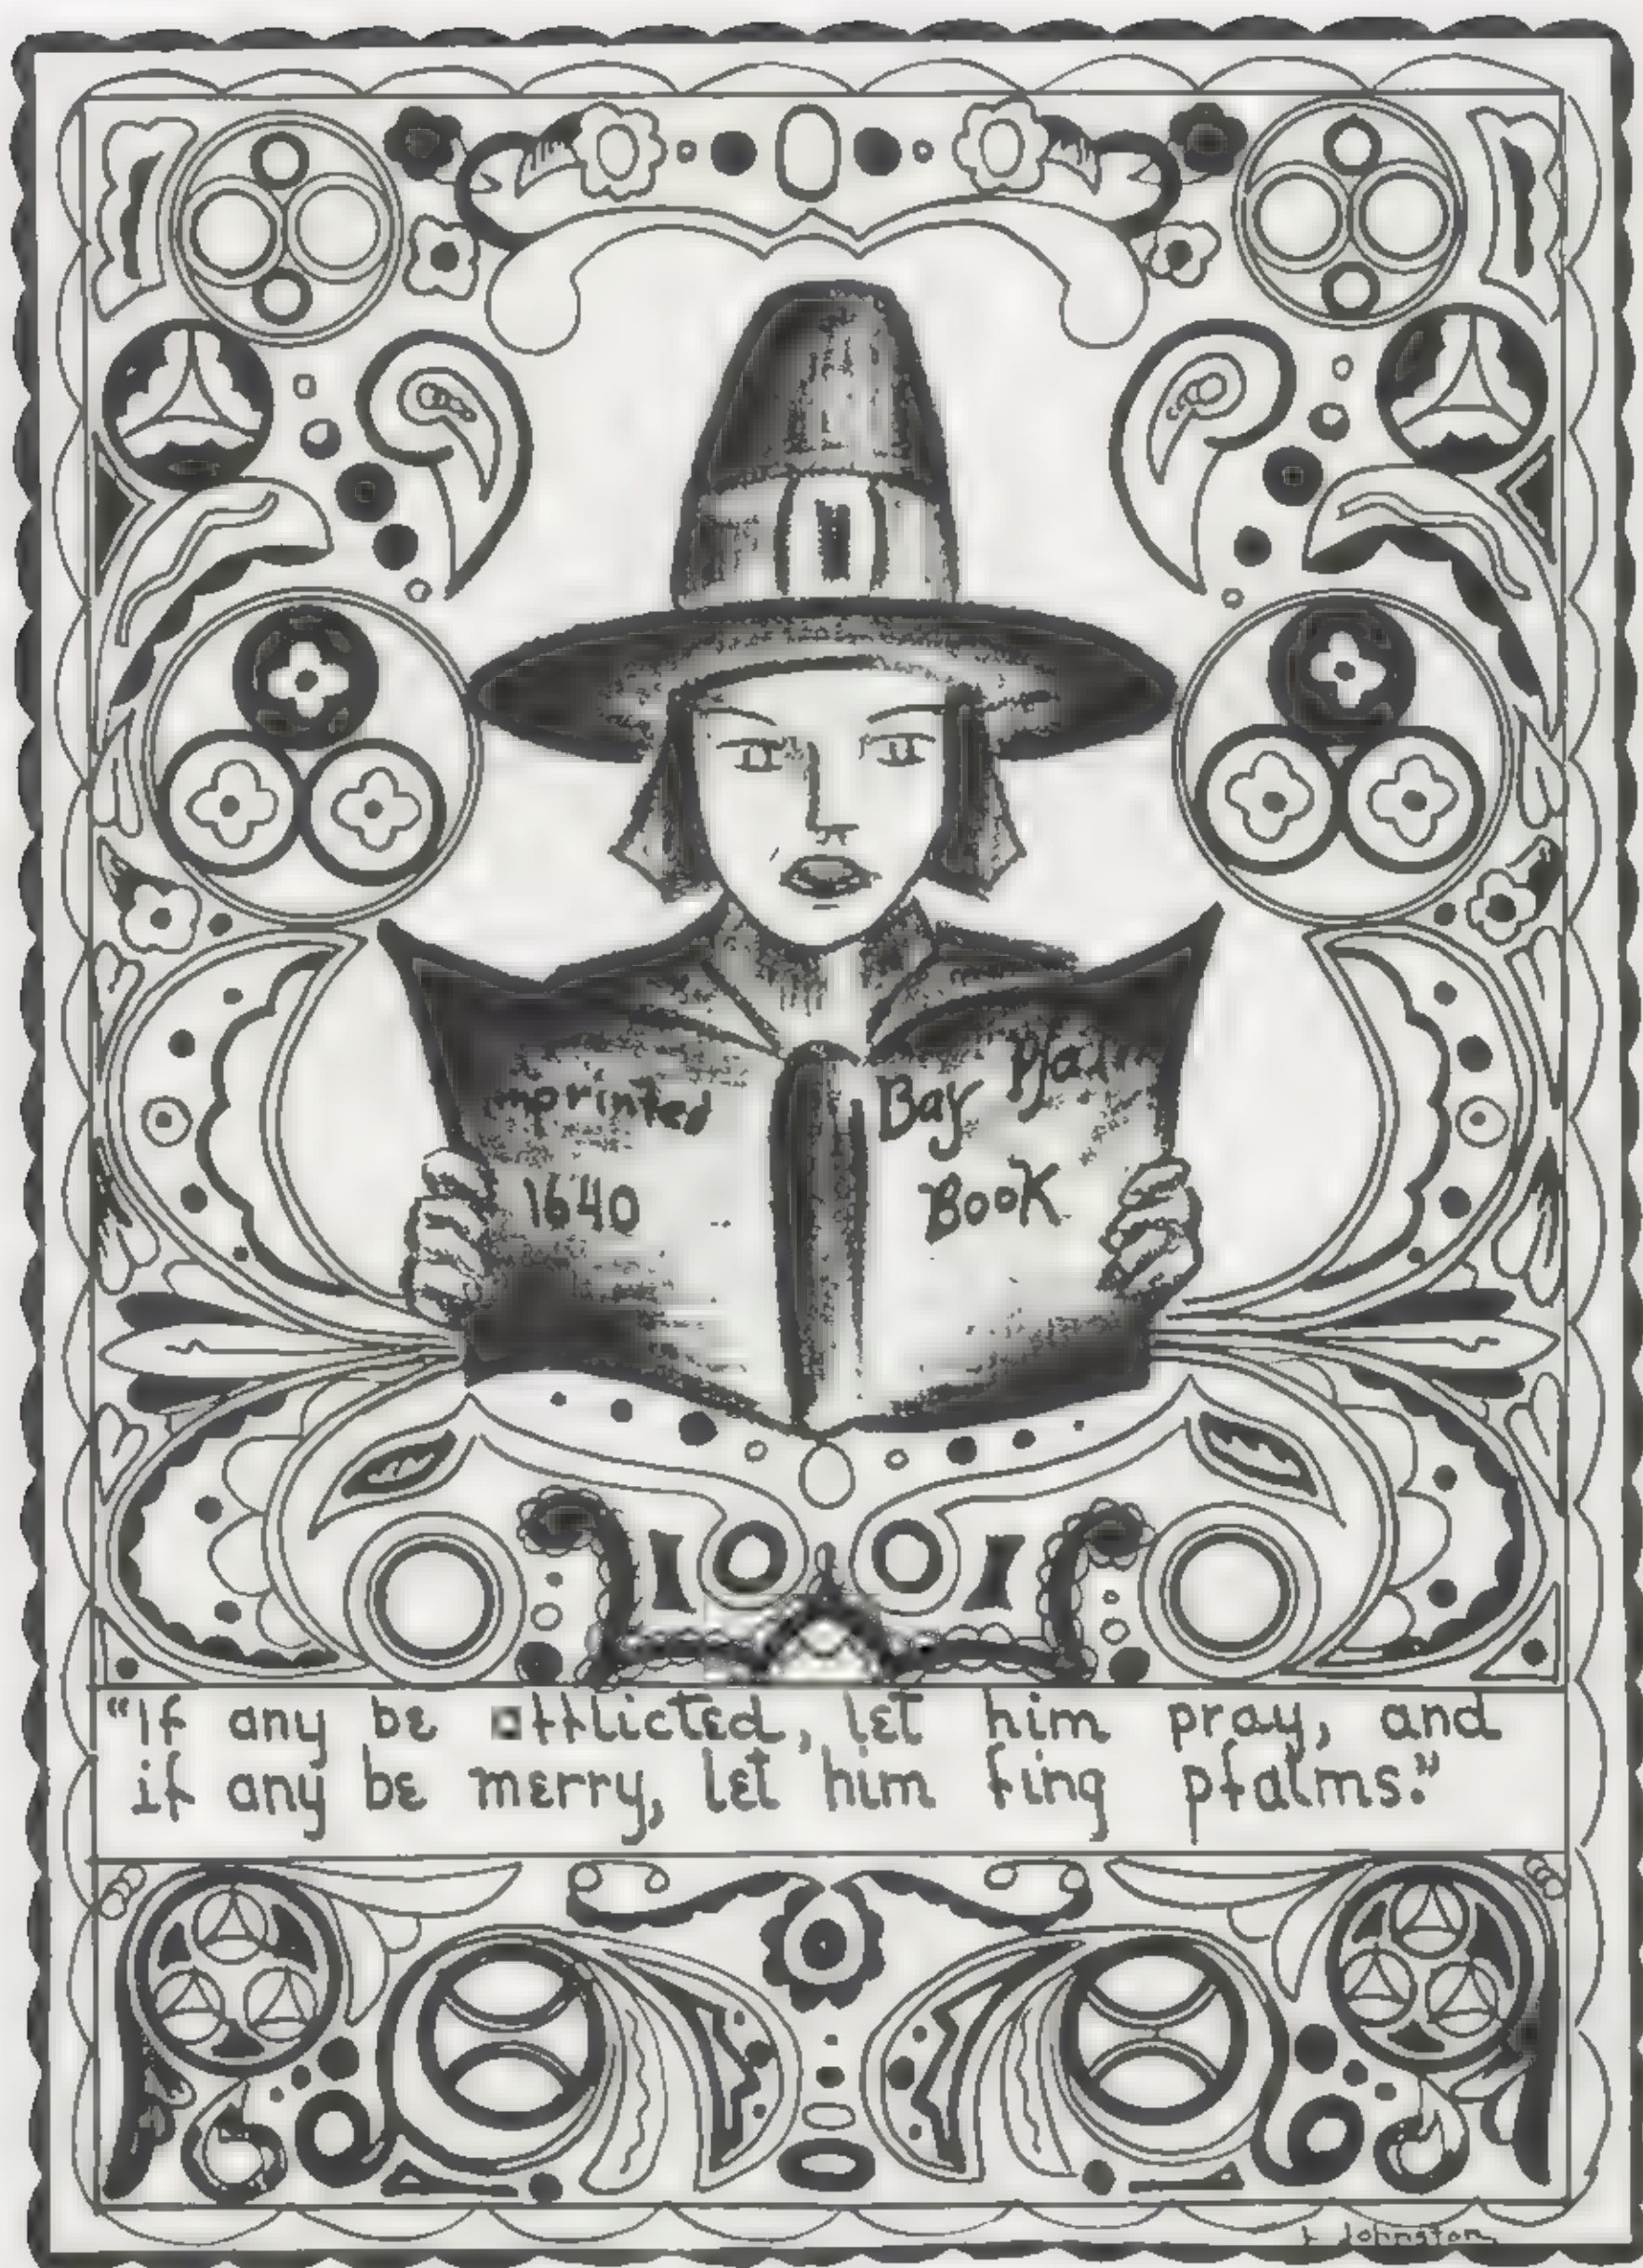 Imprinted
1640
Bay Psalm
Book
"If any be afflicted, let him pray, and
if any be merry, let him ſing pſalms."
L Johnston